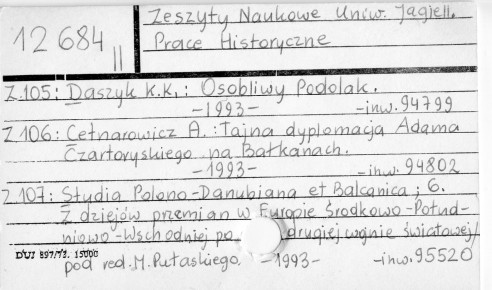 Zeszyty Naukowe Uniw. Jagiell.
12 684 II
Prace Historyczne
Z.105: Daszyk K.K.: Osobliwy Podolak.
-1993- -inw. 94799
Z 106: Cetnarowicz A.: Tajna dyplomacja Adama
Czartoryskiego na Bałkanach.
-1993- -inw. 94802
Z.107: Studia Polono-Danubiana et Balcanica; 6.
Z dziejów przemian w Europie Środkowo-Połud-
niowo-Wschodniej po drugiej wojnie światowej/
DUJ 897/78. 15000
pod red. M. Pułaskiego. -1993- -inw. 95520